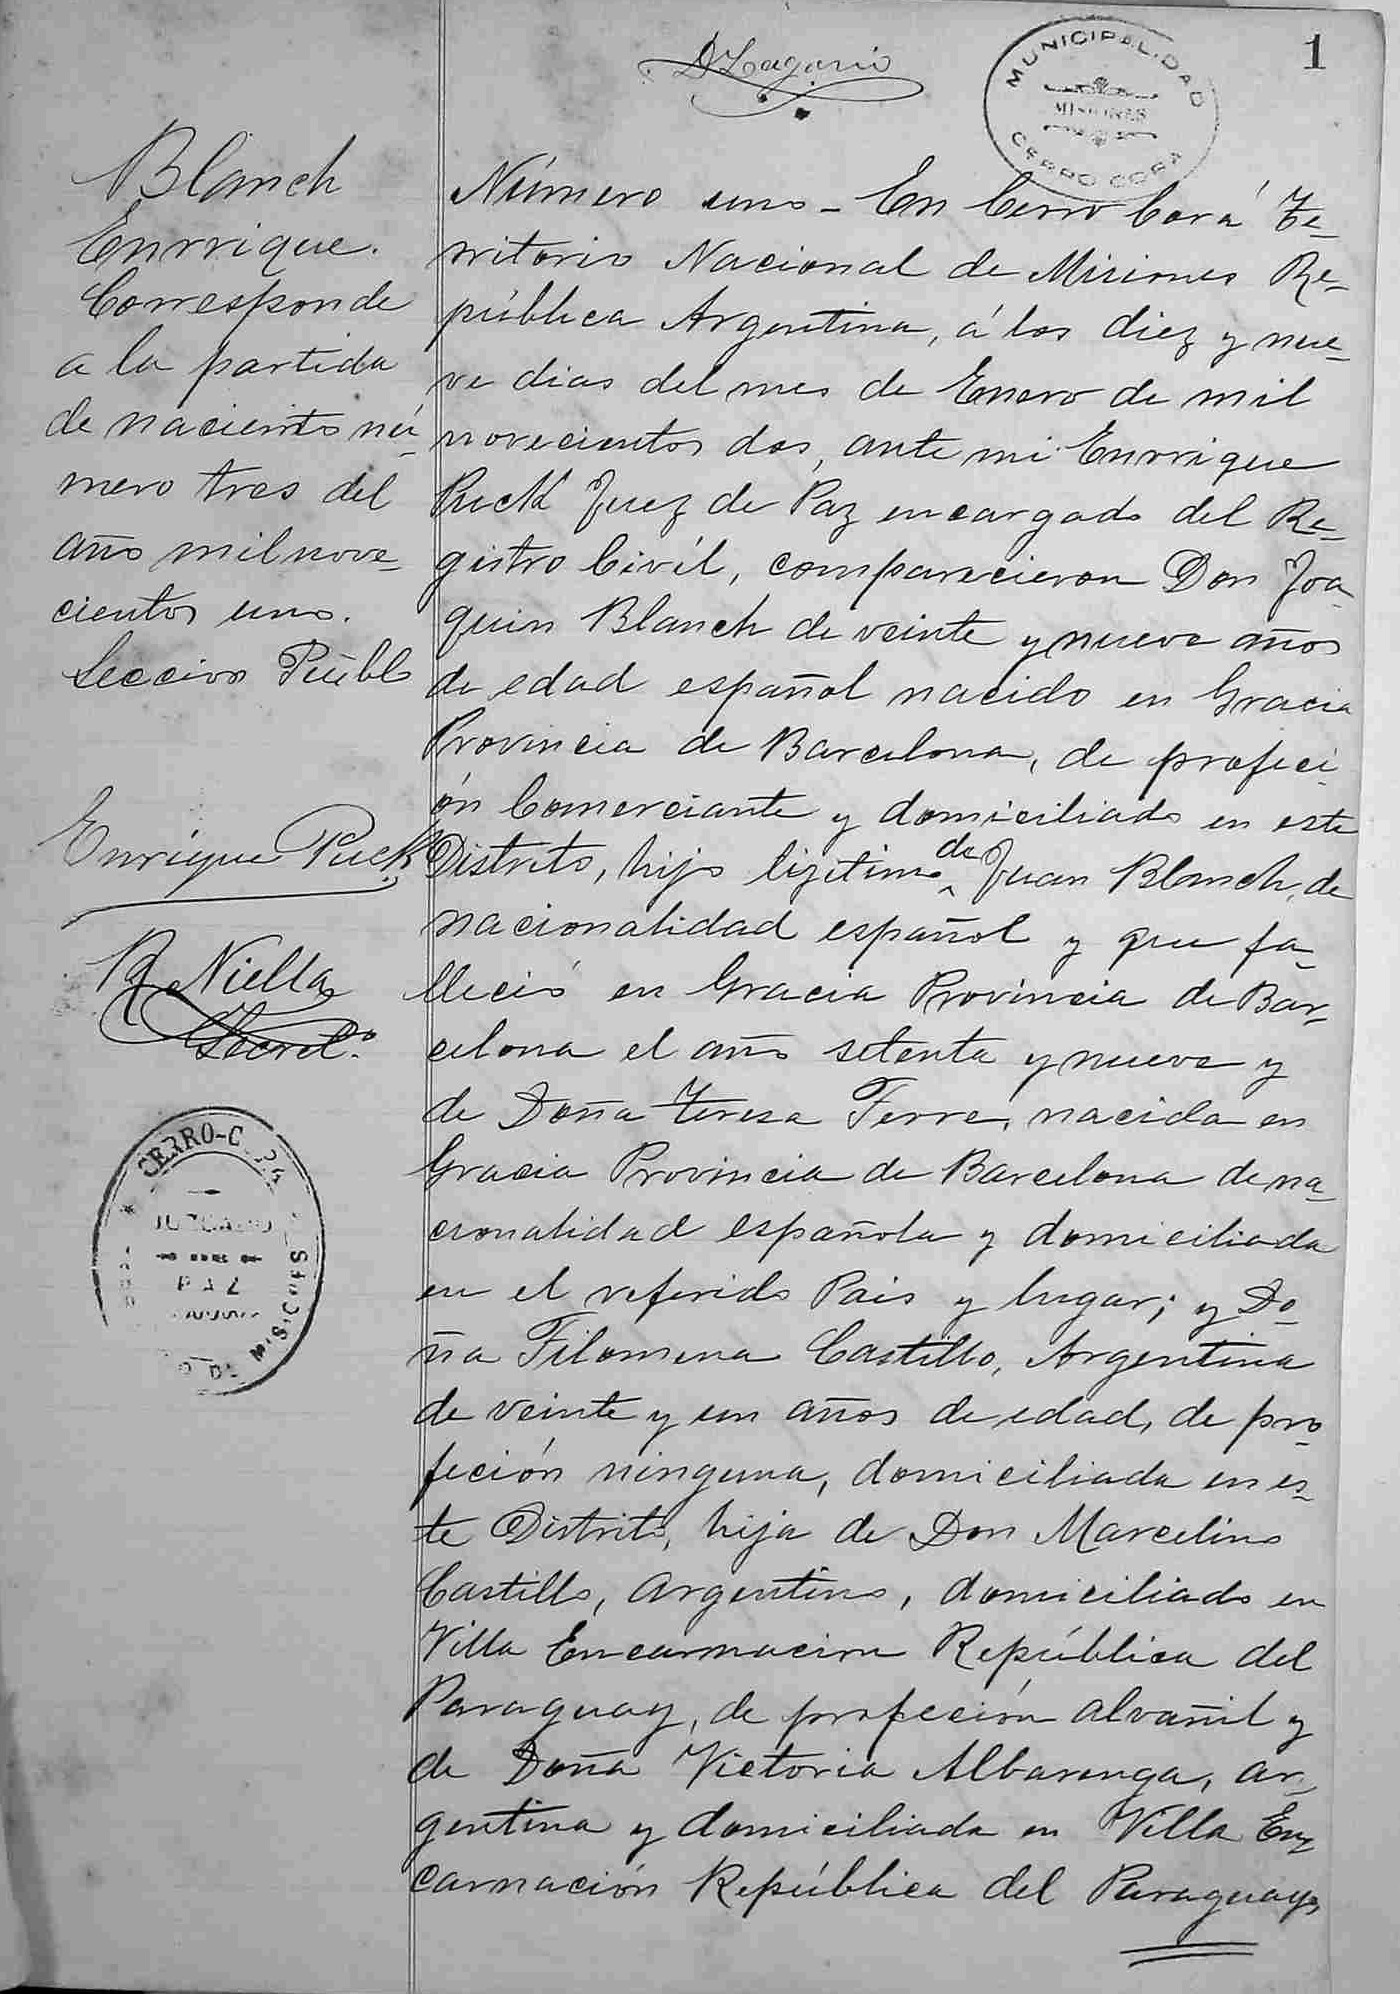 1
MUNICIPALIDAD
MISIONES
CERRO CORA
Blanch
Enrrique.
Corresponde
a la partida
de naciento nú-
mero tres del
año mil nove-
cientos uno.
Seccion Pueblo
Enrique Puck
R Niella
Secret.º
CERRO-CORA
JUZGADO
DE
PAZ
MISIONES
Número uno - En Cerro Corá Te-
rritorio Nacional de Misiones Re-
pública Argentina, á los diez y nue-
ve dias del mes de Enero de mil
novecientos dos, ante mi Enrrique
Puck Juez de Paz encargado del Re-
gistro Civíl, comparecieron Don Joa-
quin Blanch de veinte y nueve años
de edad español nacido en Gracia
Provincia de Barcelona, de profeci-
ón Comerciante y domiciliado en este
Distrito, hijo ligitimo de Juan Blanch, de
nacionalidad español y que fa-
lleció en Gracia Provincia de Bar-
celona el año setenta y nueve y
de Doña Teresa Ferre, nacida en
Gracia Provincia de Barcelona de na-
cionalidad española y domiciliada
en el referido Pais y lugar; y Do-
ña Filomena Castillo, Argentina
de veinte y un años de edad, de pro-
feción ninguna, domiciliada en es-
te Distrito, hija de Don Marcelino
Castillo, Argentino, domiciliado en
Villa Encarnacion República del
Paraguay, de profeción alvañil y
de Doña Victoria Albarenga, ar-
gentina y domiciliada en Villa En-
carnación República del Paraguay,